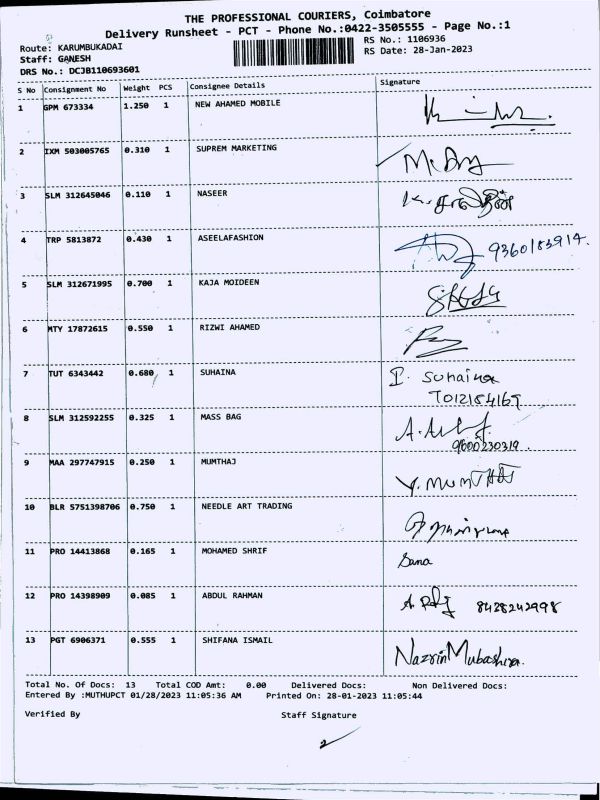 THE PROFESSIONAL COURIERS, Coimbatore
Delivery Runsheet - PCT - Phone No.:0422-3505555 - Page No.:1
Route: KARUMBUKADAI
RS No.: 1106936
Staff: GANESH
RS Date: 28-Jan-2023
DRS No.: DCJB110693601
S No Consignment No Weight PCS Consignee Details Signature
1 GPM 673334 1.250 1 NEW AHAMED MOBILE
2 IXM 503005765 0.310 1 SUPREM MARKETING
3 SLM 312645046 0.110 1 NASEER
4 TRP 5813872 0.430 1 ASEELAFASHION 9360183914.
5 SLM 312671995 0.700 1 KAJA MOIDEEN
6 MTY 17872615 0.550 1 RIZWI AHAMED
7 TUT 6343442 0.680 1 SUHAINA I. Suhaina
8 SLM 312592255 0.325 1 MASS BAG
9600230319.
9 MAA 297747915 0.250 1 MUMTHAJ
10 BLR 5751398706 0.750 1 NEEDLE ART TRADING
11 PRO 14413868 0.165 1 MOHAMED SHRIF Sana
12 PRO 14398909 0.085 1 ABDUL RAHMAN 8428242998
13 PGT 6906371 0.555 1 SHIFANA ISMAIL Nazrin Mubashira.
Total No. Of Docs: 13 Total COD Amt: 0.00 Delivered Docs: Non Delivered Docs:
Entered By :MUTHUPCT 01/28/2023 11:05:36 AM Printed On: 28-01-2023 11:05:44
Verified By Staff Signature